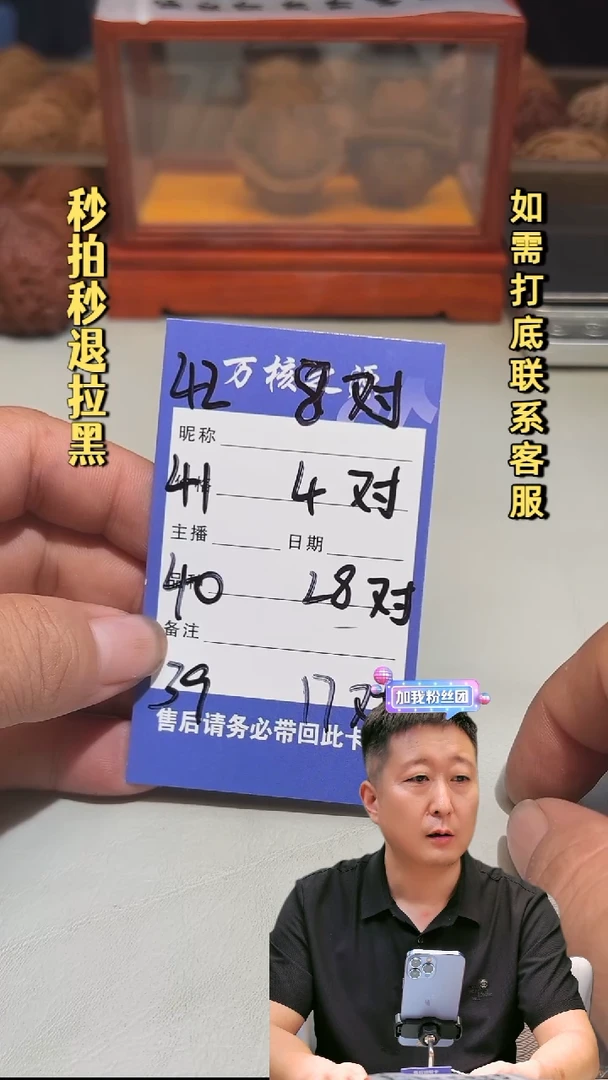 秒拍秒退拉黑
如需打底联系客服
万核
42 8对
昵称
41 4对
主播 日期
40 28对
备注
39 17对
售后请务必带回此卡
加我粉丝团